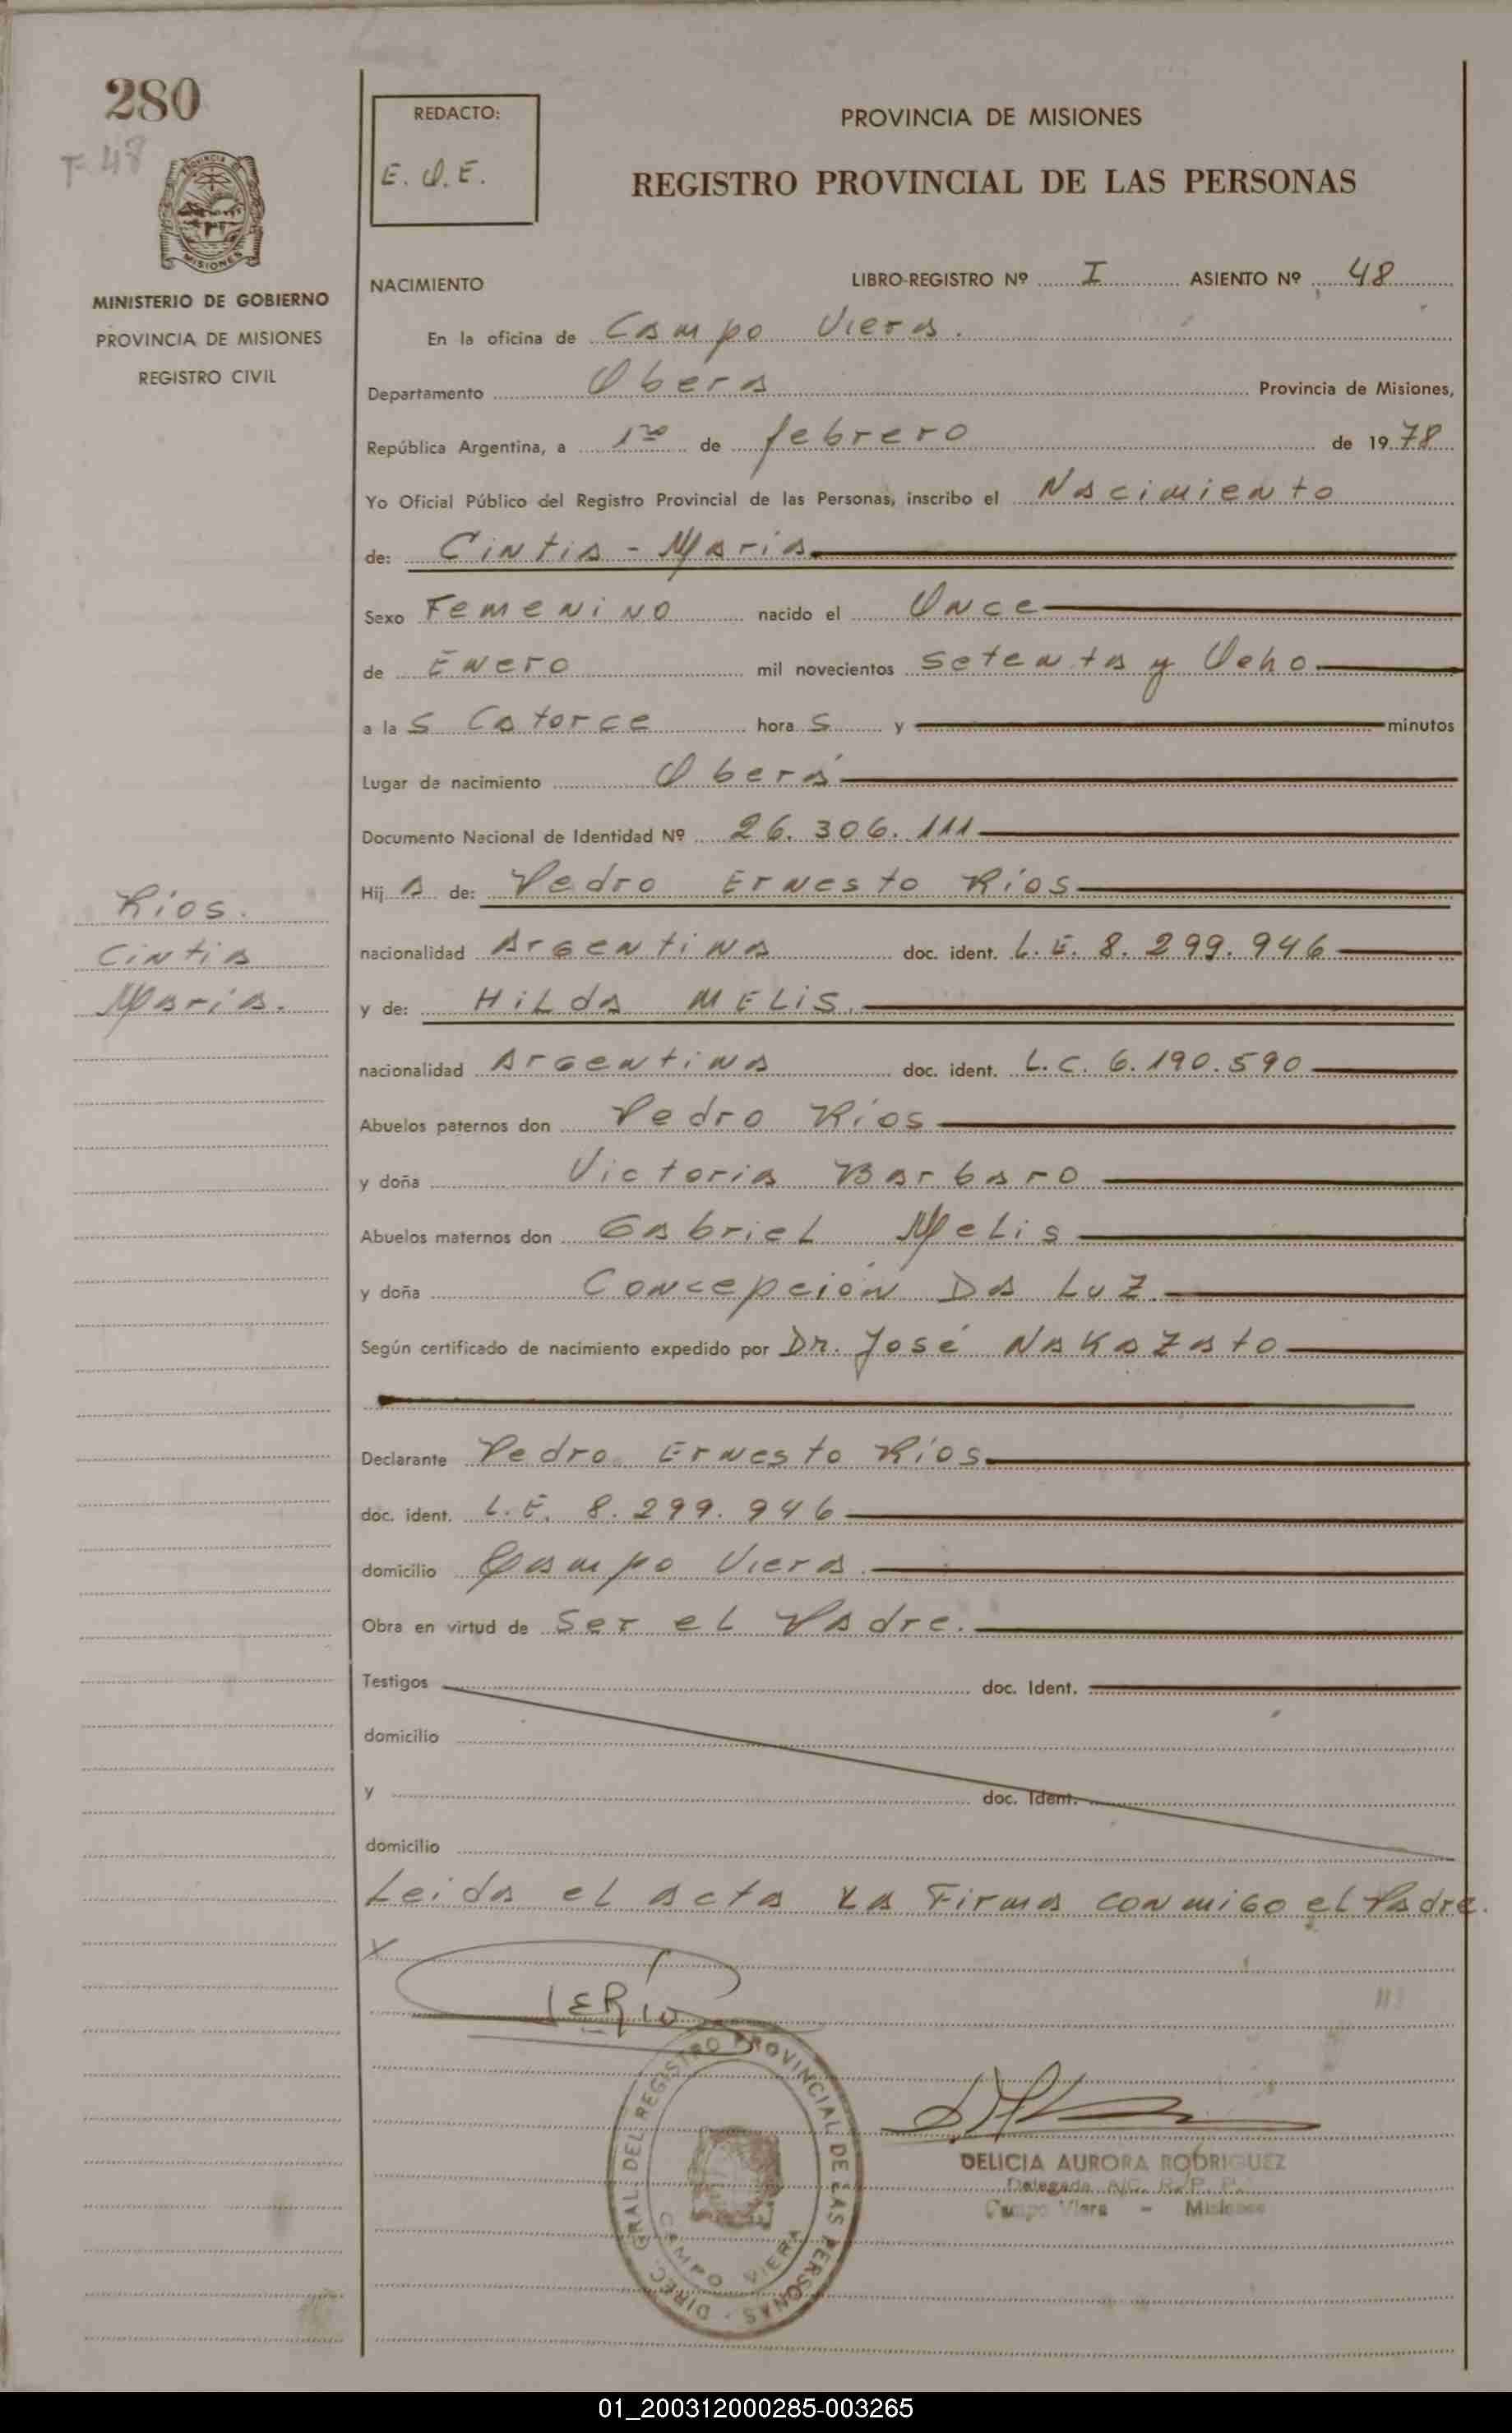 280
F-48
PROVINCIA DE MISIONES
MINISTERIO DE GOBIERNO
PROVINCIA DE MISIONES
REGISTRO CIVIL
Rios.
Cintia
Maria.
REDACTO:
E. O. E.
PROVINCIA DE MISIONES
REGISTRO PROVINCIAL DE LAS PERSONAS
NACIMIENTO LIBRO-REGISTRO Nº I ASIENTO Nº 48
En la oficina de Campo Viera.
Departamento Obera Provincia de Misiones,
República Argentina, a 1ro de febrero de 1978
Yo Oficial Público del Registro Provincial de las Personas, inscribo el Nacimiento
de: Cintia - Maria
Sexo Femenino nacido el Once
de Enero mil novecientos setenta y Ocho
a las Catorce horas y minutos
Lugar de nacimiento Oberá
Documento Nacional de Identidad Nº 26.306.111
Hija de: Pedro Ernesto Ríos
nacionalidad Argentina doc. ident. L.E. 8.299.946
y de: Hilda MELis.
nacionalidad Argentina doc. ident. L.C. 6.190.590
Abuelos paternos don Pedro Ríos
y doña Victoria Barbaro
Abuelos maternos don Gabriel Melis
y doña Concepción Da Luz.
Según certificado de nacimiento expedido por Dr. José Nakazato
Declarante Pedro Ernesto Ríos
doc. ident. L.E. 8.299.946
domicilio Campo Viera.
Obra en virtud de Ser el Padre.
Testigos doc. Ident.
domicilio
y doc. Ident.
domicilio
Leida el acta La Firma conmigo el Padre.
X
DIREC. GRAL. DEL REGISTRO PROVINCIAL DE LAS PERSONAS
CAMPO VIERA
DELICIA AURORA RODRIGUEZ
Delegada A/C. R. P. P.
Campo Viera - Misiones
01_200312000285-003265